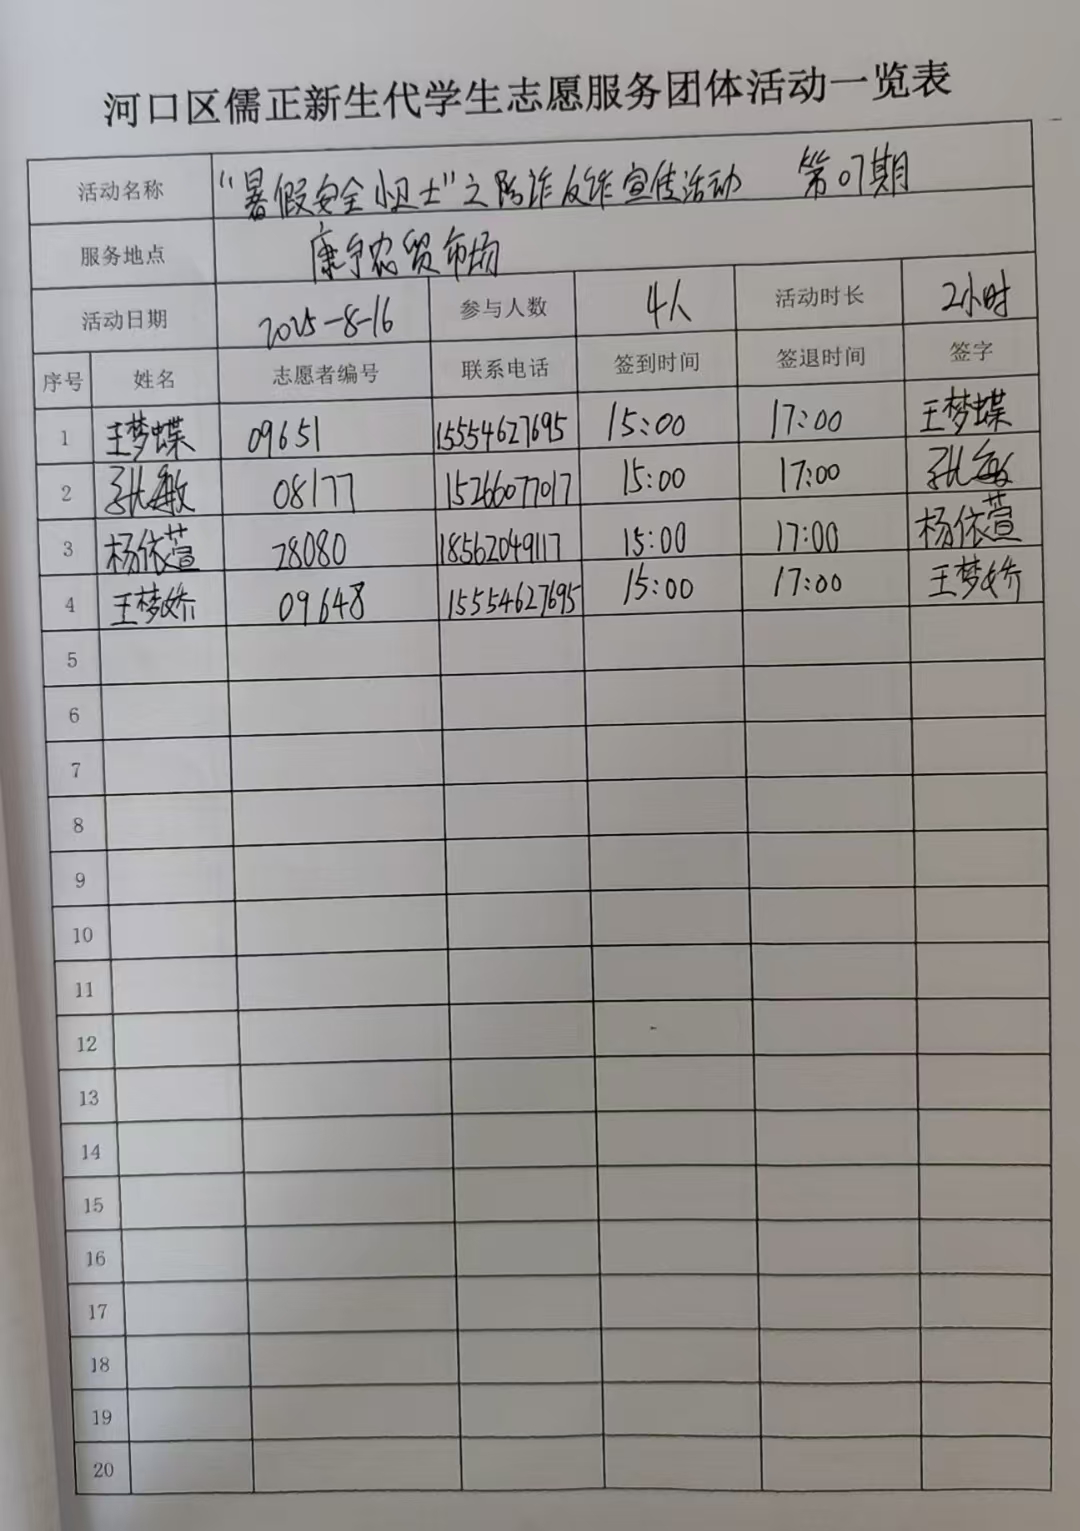 河口区儒正新生代学生志愿服务团体活动一览表
活动名称 “暑假安全小卫士”之防诈反诈宣传活动 第07期
服务地点 康宁农贸市场
活动日期 2025-8-16 参与人数 4人 活动时长 2小时
序号 姓名 志愿者编号 联系电话 签到时间 签退时间 签字
1 王梦蝶 09651 15554627695 15:00 17:00 王梦蝶
2 张敏 08177 15266077017 15:00 17:00 张敏
3 杨依萱 28080 18562049117 15:00 17:00 杨依萱
4 王梦娇 09648 15554627695 15:00 17:00 王梦娇
5
6
7
8
9
10
11
12
13
14
15
16
17
18
19
20